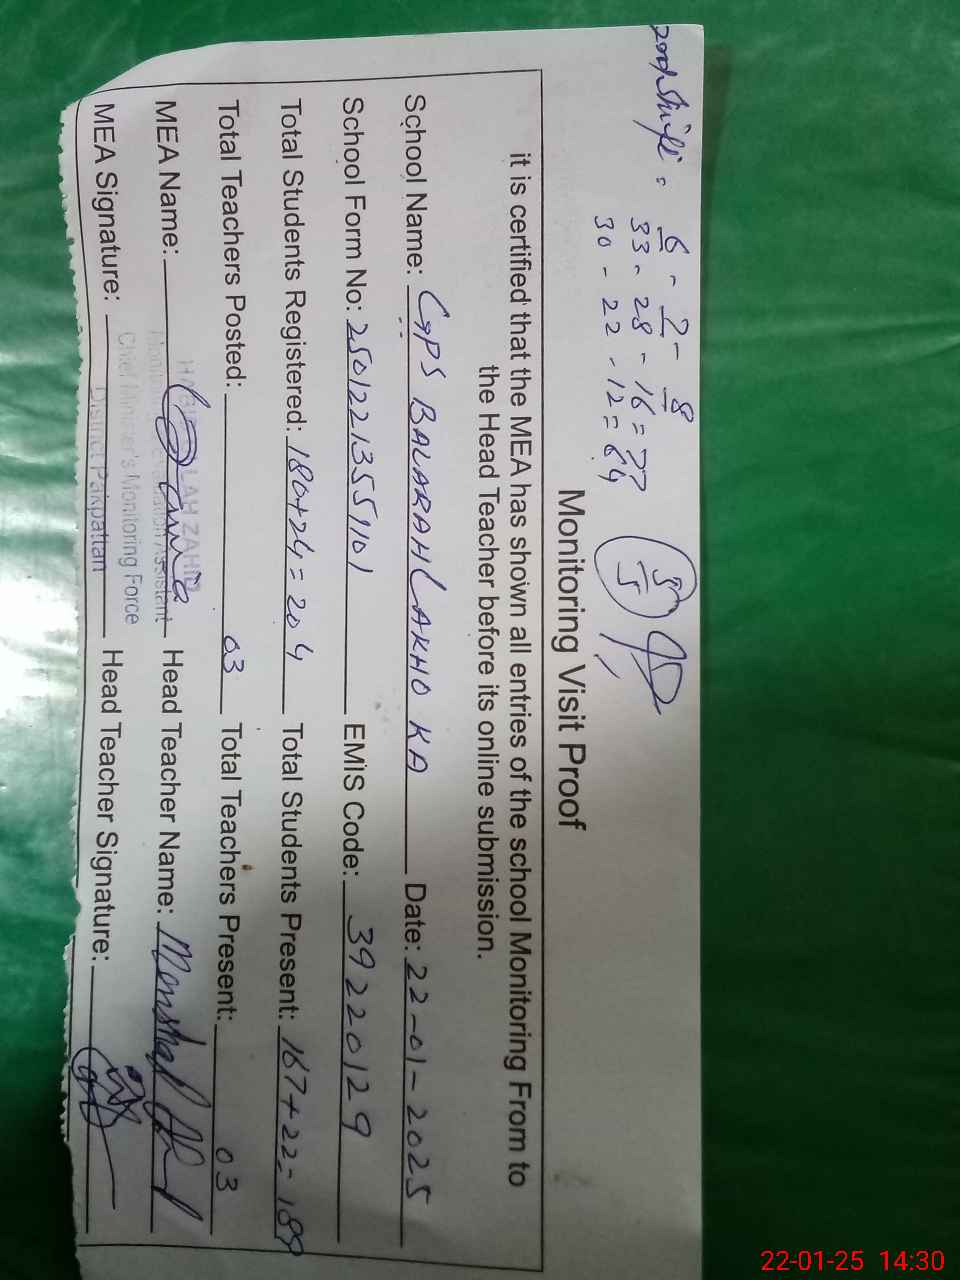 2nd Shift. 6 - 7 - 8
33 - 28 - 16 = 77
30 - 22 - 12 = 64
5/5
Monitoring Visit Proof
it is certified that the MEA has shown all entries of the school Monitoring From to
the Head Teacher before its online submission.
School Name: GPS BALARAH LAKHO KA Date: 22-01-2025
School Form No: 25012213551101 EMIS Code: 39220129
Total Students Registered: 180+24=204 Total Students Present: 167+22=189
Total Teachers Posted: 03 Total Teachers Present: 03
MEA Name: Head Teacher Name:
MEA Signature: Head Teacher Signature:
LAH ZAHID
Chief Minister's Monitoring Force
District Pakpattan
22-01-25 14:30